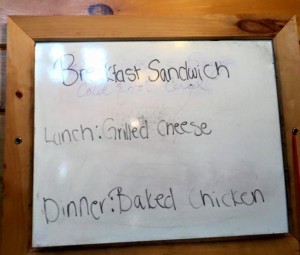 Breakfast Sandwich
Lunch: Grilled Cheese
Dinner: Baked Chicken